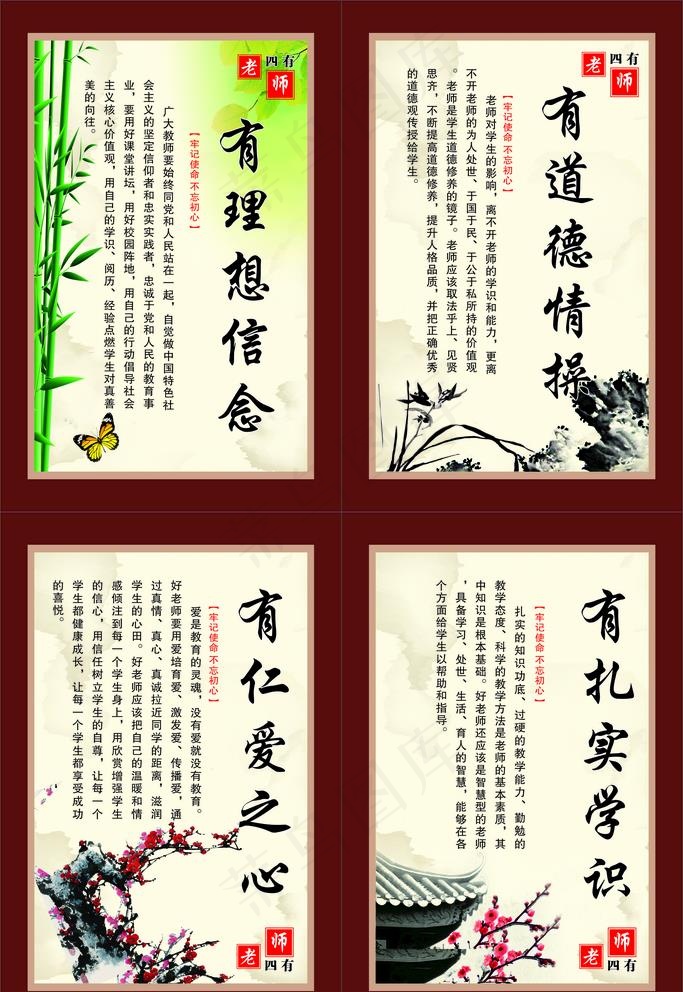 四有
老师
有理想信念
【牢记使命 不忘初心】
广大教师要始终同党和人民站在一起，自觉做中国特色社
会主义的坚定信仰者和忠实实践者，忠诚于党和人民的教育事
业，要用好课堂讲坛，用好校园阵地，用自己的行动倡导社会
主义核心价值观，用自己的学识、阅历、经验点燃学生对真善
美的向往。
四有
老师
有道德情操
【牢记使命 不忘初心】
老师对学生的影响，离不开老师的学识和能力，更离
不开老师的为人处世、于国于民、于公于私所持的价值观
。老师是学生道德修养的镜子。老师应该取法乎上、见贤
思齐，不断提高道德修养，提升人格品质，并把正确优秀
的道德观传授给学生。
有仁爱之心
【牢记使命 不忘初心】
爱是教育的灵魂，没有爱就没有教育。
好老师要用爱培育爱、激发爱、传播爱，通
过真情、真心、真诚拉近同学的距离，滋润
学生的心田。好老师应该把自己的温暖和情
感倾注到每一个学生身上，用欣赏增强学生
的信心，用信任树立学生的自尊，让每一个
学生都健康成长，让每一个学生都享受成功
的喜悦。
四有
老师
有扎实学识
【牢记使命 不忘初心】
扎实的知识功底、过硬的教学能力、勤勉的
教学态度、科学的教学方法是老师的基本素质，其
中知识是根本基础。好老师还应该是智慧型的老师
，具备学习、处世、生活、育人的智慧，能够在各
个方面给学生以帮助和指导。
四有
老师